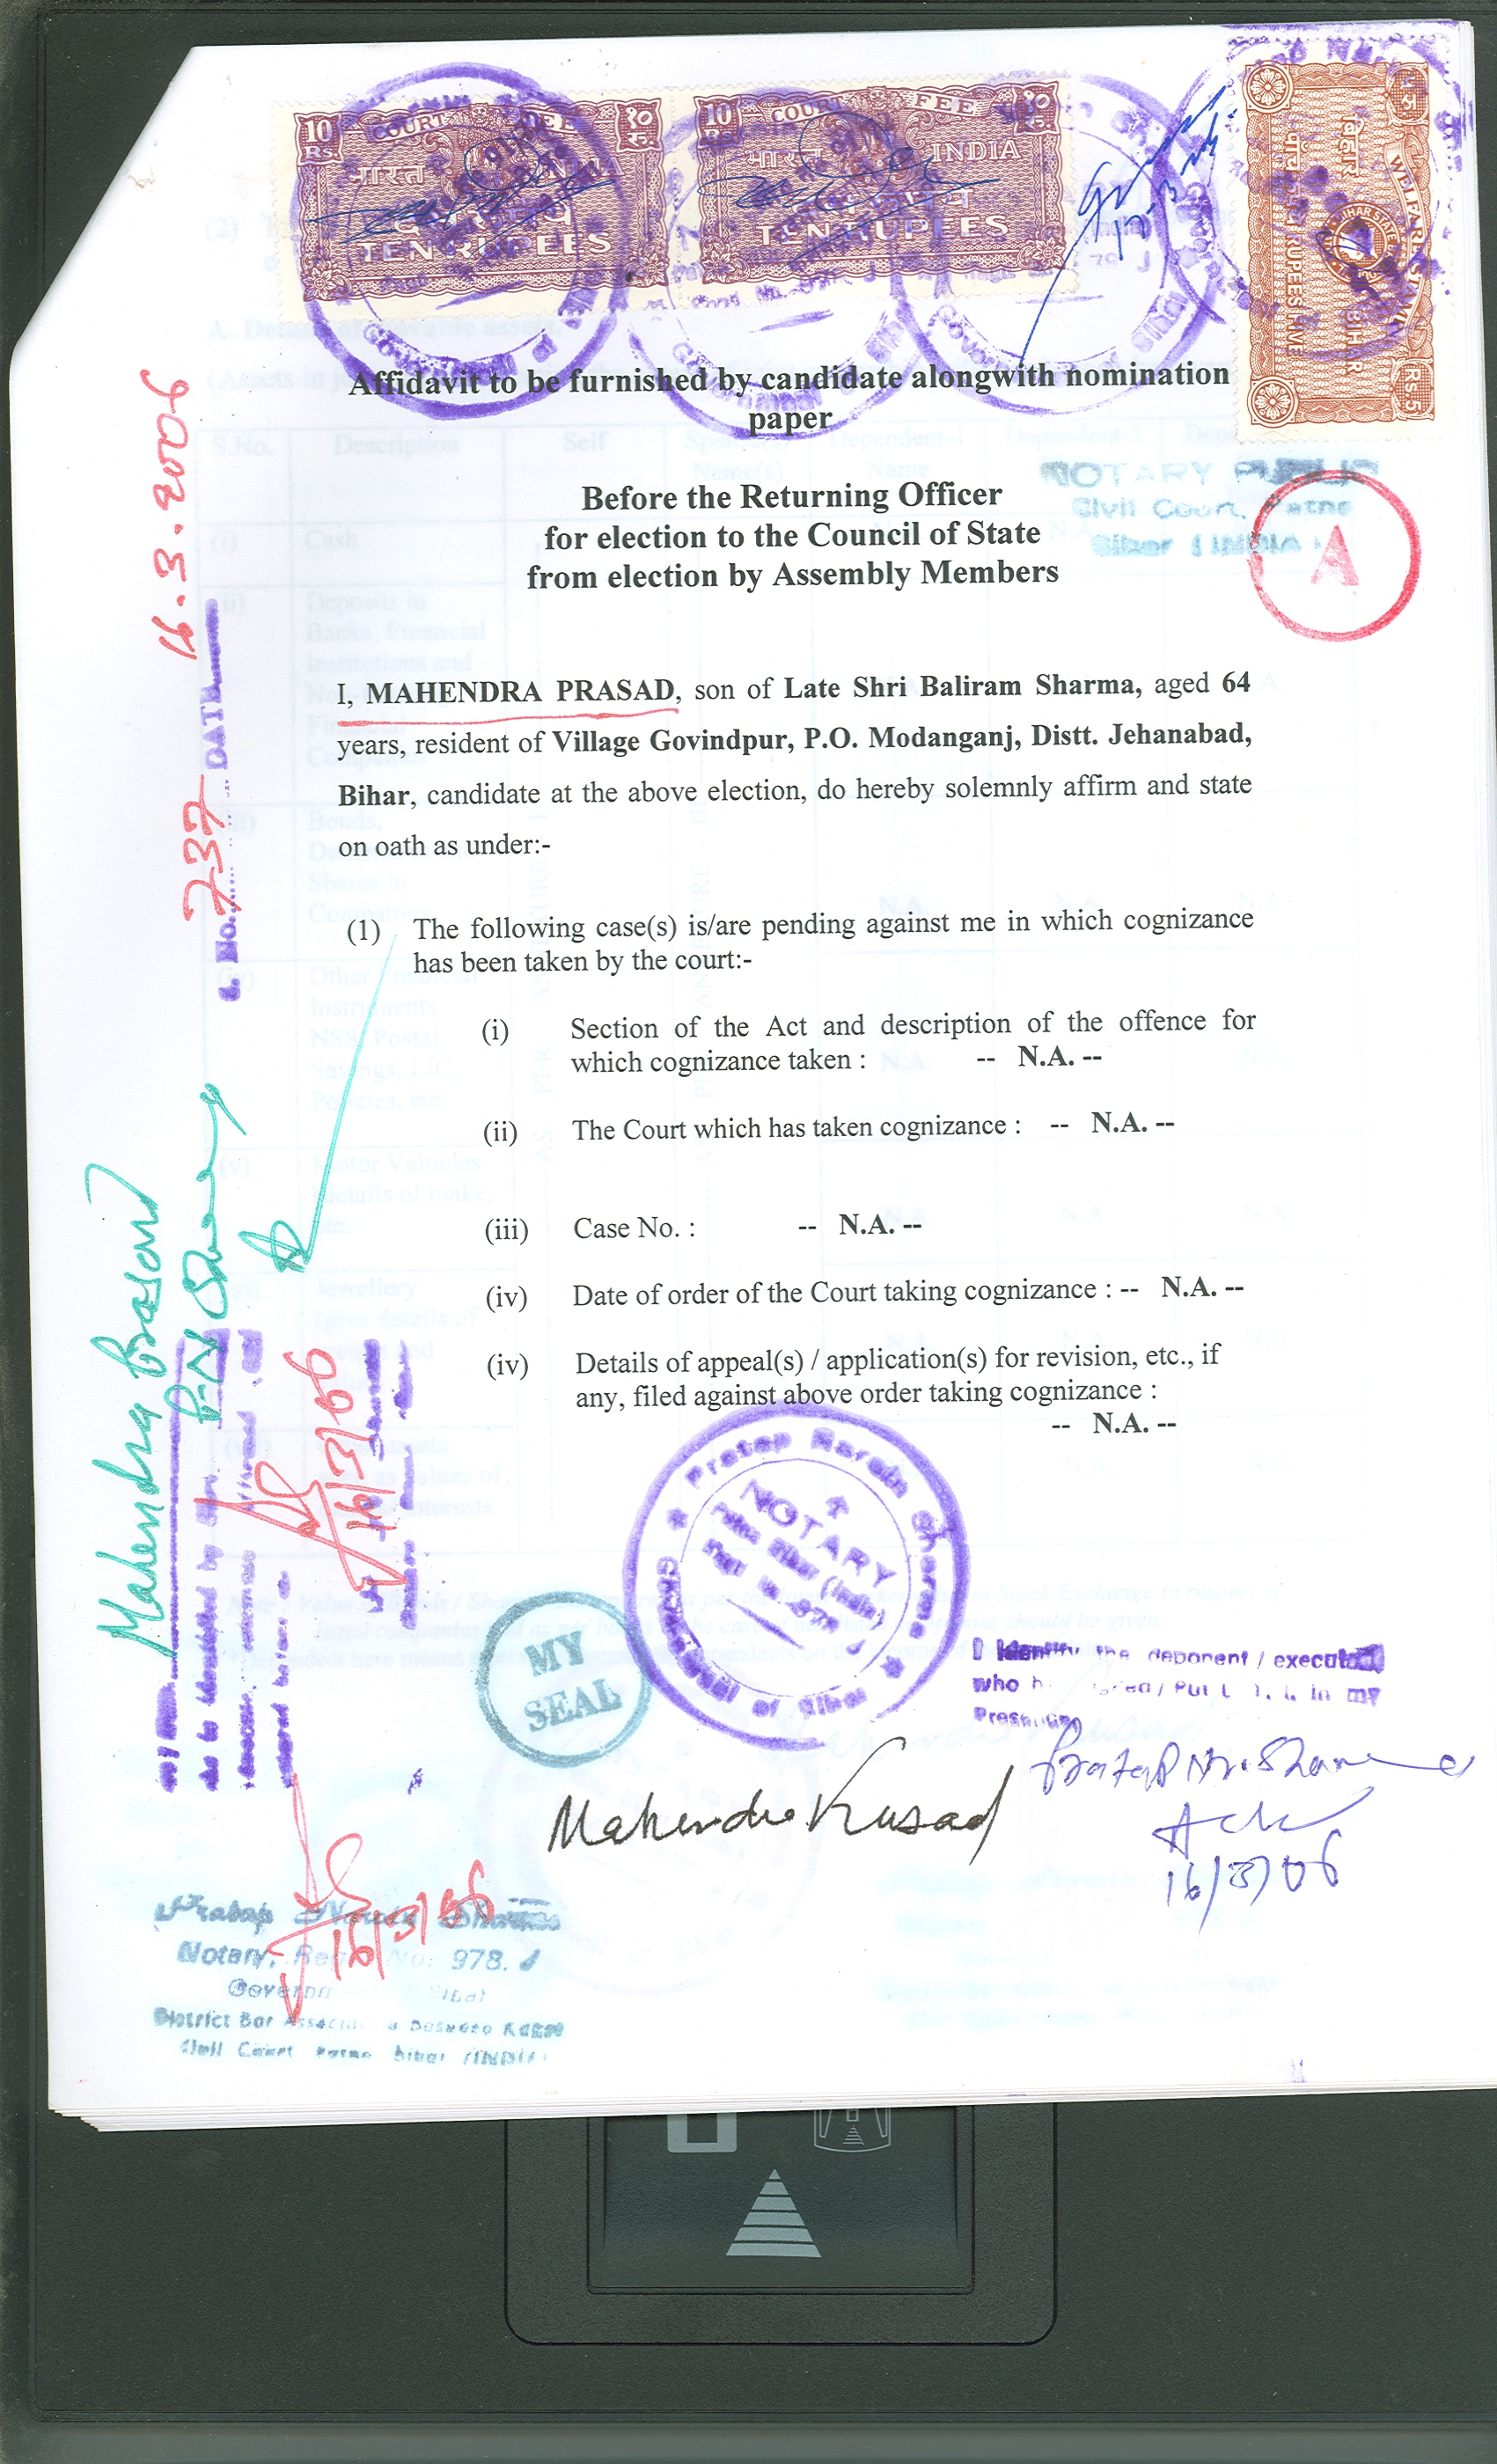 10 COURT FEE १० रु.
Rs.
भारत INDIA
TEN RUPEES
10 COURT FEE १० रु.
Rs.
भारत INDIA
TEN RUPEES
WELFARE STAMP
BIHAR STATE BAR
बिहार BIHAR
पाँच रुपये RUPEES FIVE
Rs.5
Affidavit to be furnished by candidate alongwith nomination
paper
NOTARY PUBLIC
Civil Court, Patna
Bihar (INDIA)
A
Before the Returning Officer
for election to the Council of State
from election by Assembly Members
I, MAHENDRA PRASAD, son of Late Shri Baliram Sharma, aged 64
years, resident of Village Govindpur, P.O. Modanganj, Distt. Jehanabad,
Bihar, candidate at the above election, do hereby solemnly affirm and state
on oath as under:-
(1) The following case(s) is/are pending against me in which cognizance
has been taken by the court:-
(i) Section of the Act and description of the offence for
which cognizance taken : -- N.A. --
(ii) The Court which has taken cognizance : -- N.A. --
(iii) Case No. : -- N.A. --
(iv) Date of order of the Court taking cognizance : -- N.A. --
(iv) Details of appeal(s) / application(s) for revision, etc., if
any, filed against above order taking cognizance :
-- N.A. --
No. 737 DATE 16.3.2006
Mahendra Prasad
P. N. Sharma
16/3/06
MY
SEAL
Pratap Narain Sharma
NOTARY
Patna Bihar (India)
Regd. No. 978 J
Government of Bihar
I Identify the deponent / executed
who in my
Presence
Pratap Nr. Sharma
Adv
16/3/06
Mahendra Prasad
Pratap Narain Sharma
Notary, Regd. No: 978. J
Government Bihar
District Bar Association
Civil Court Patna Bihar (INDIA)
16/3/06